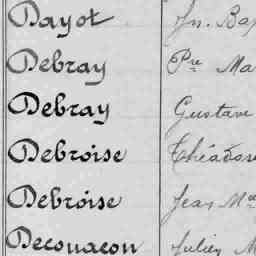 Dayot Jn. Bap
Debray Pre Ma
Debray Gustave
Debroise Théodore
Debroise Jean Mie
Decouacon Julien M